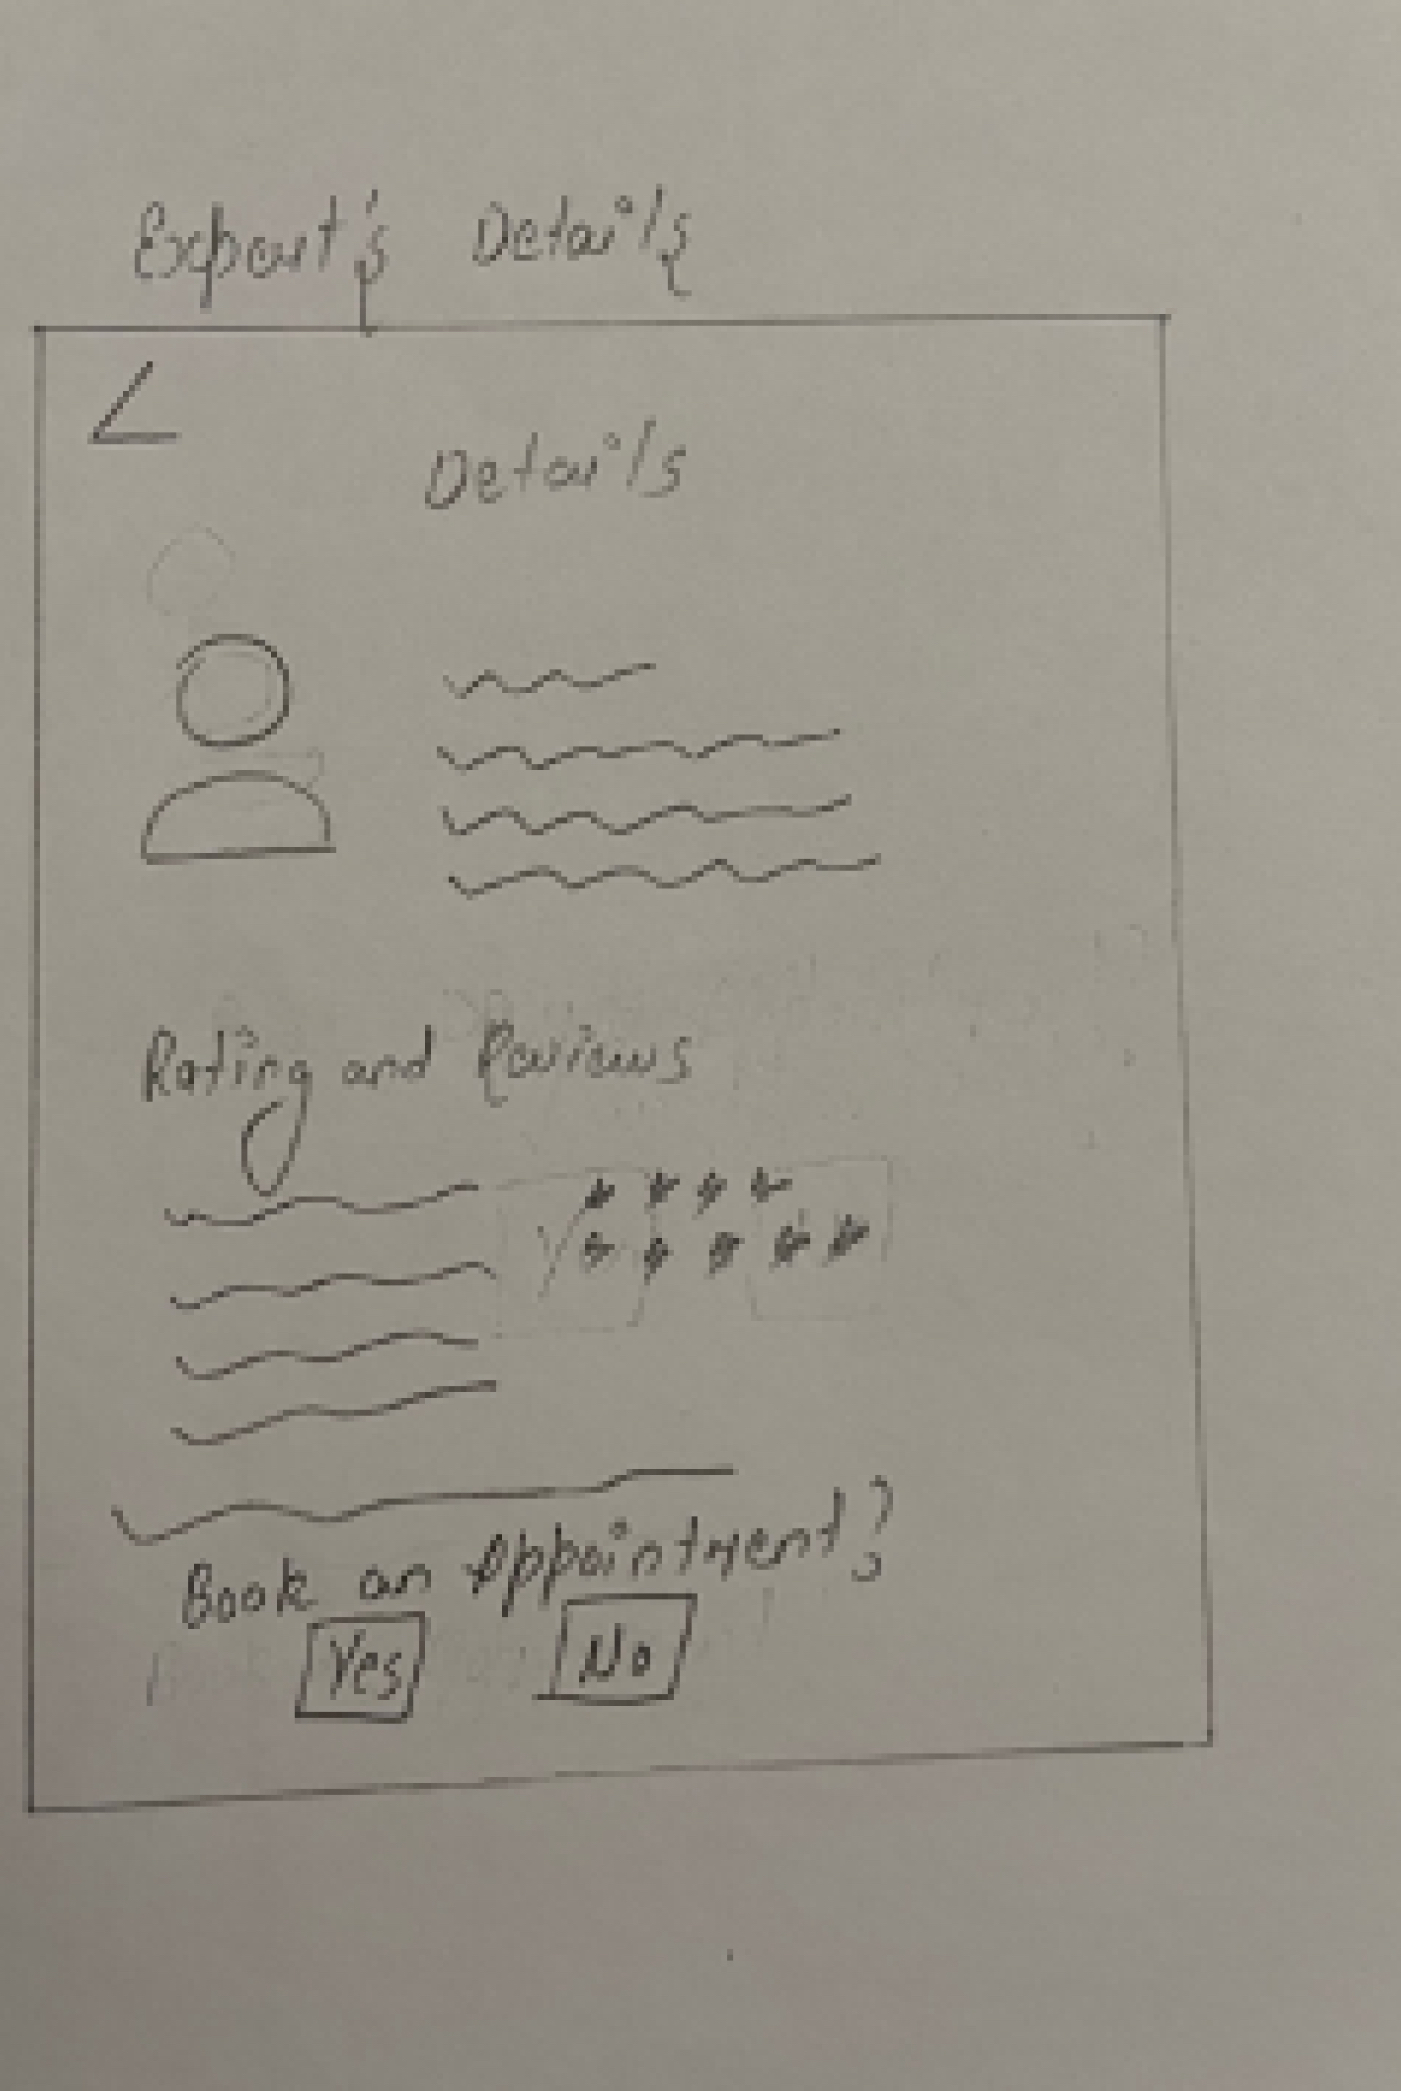 Expert's Details
Details
Rating and Reviews
Book an Appointment?
Yes
No